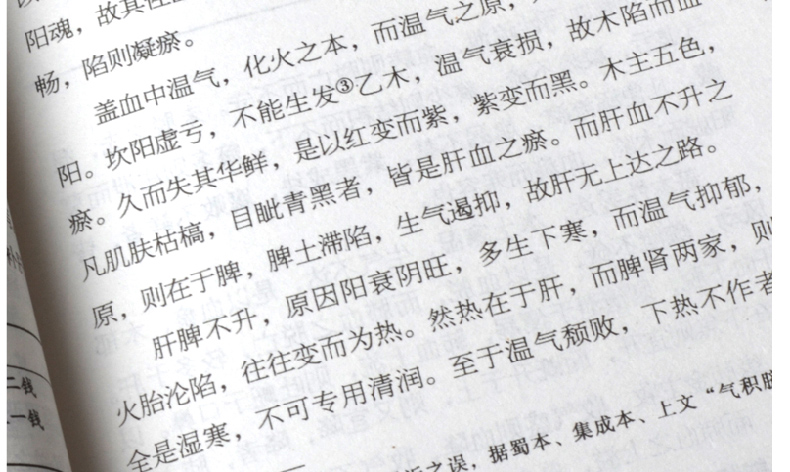 阳魂，故其性
畅，陷则凝瘀。
盖血中温气，化火之本，而温气之原，
阳。坎阳虚亏，不能生发③乙木，温气衰损，故木陷而血
瘀。久而失其华鲜，是以红变而紫，紫变而黑。木主五色，
凡肌肤枯槁，目眦青黑者，皆是肝血之瘀。而肝血不升之
原，则在于脾，脾土滞陷，生气遏抑，故肝无上达之路。
肝脾不升，原因阳衰阴旺，多生下寒，而温气抑郁，
火胎沦陷，往往变而为热。然热在于肝，而脾肾两家，则
全是湿寒，不可专用清润。至于温气颓败，下热不作者
之误，据蜀本、集成本、上文“气积
二钱
一钱